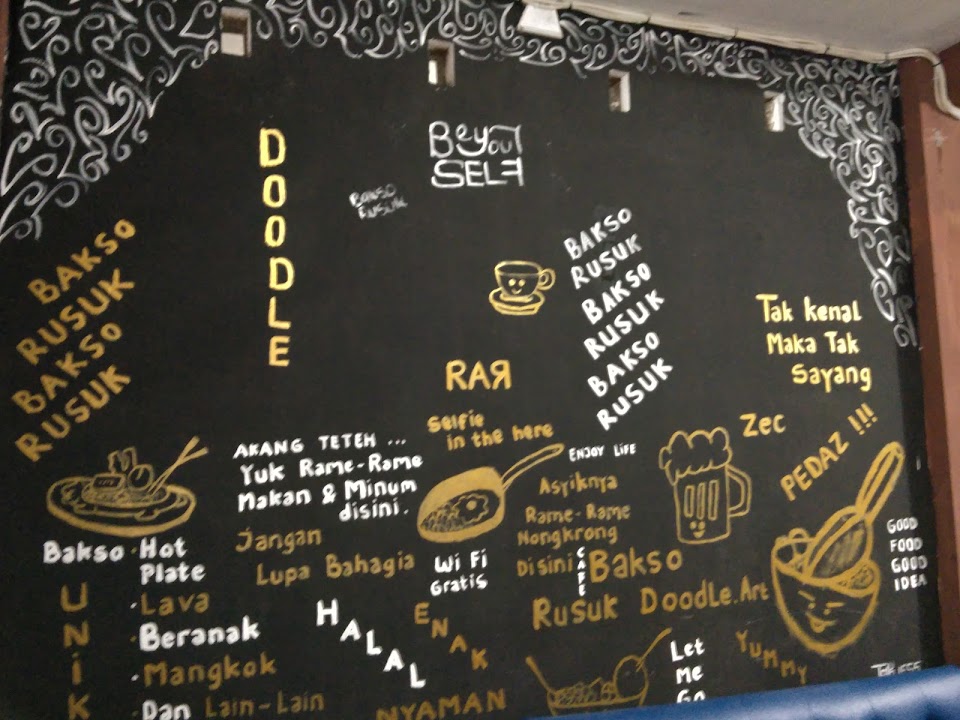 DOODLE
Beyout
SELF
BAKSO
RUSUK
BAKSO
RUSUK
BAKSO
RUSUK
BAKSO
RUSUK
BAKSO
RUSUK
BAKSO
RUSUK
Tak kenal
Maka Tak
Sayang
RAR
Selfie
in the here
ENJOY LIFE
Zec
PEDAZ !!!
AKANG TETEH ...
Yuk Rame-Rame
Makan & Minum
disini.
Asyiknya
Rame-Rame
Nongkrong
Disini
CAFE
Bakso
Rusuk Doodle.Art
GOOD
FOOD
GOOD
IDEA
Jangan
Lupa Bahagia
Wi Fi
Gratis
Bakso
UNiK
· Hot
Plate
· Lava
· Beranak
· Mangkok
· Dan Lain-Lain
HALAL
ENAK
NYAMAN
Let
Me
Go
YUMMY